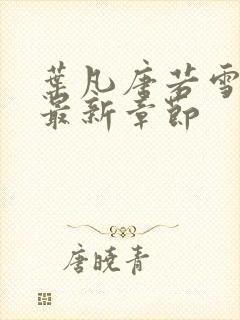 葉凡唐若雪
最新章節
唐曉青